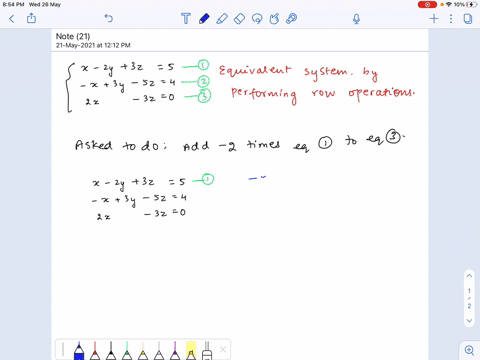 8:54 PM Wed 26 May
10%
Note (21)
21-May-2021 at 12:12 PM
x - 2y + 3z = 5 — ①
-x + 3y - 5z = 4 — ②
2x - 3z = 0 — ③
Equivalent system by
performing row operations.
Asked to do: Add -2 times eq ① to eq ③.
x - 2y + 3z = 5 — ①
-x + 3y - 5z = 4
2x - 3z = 0
1
/
2